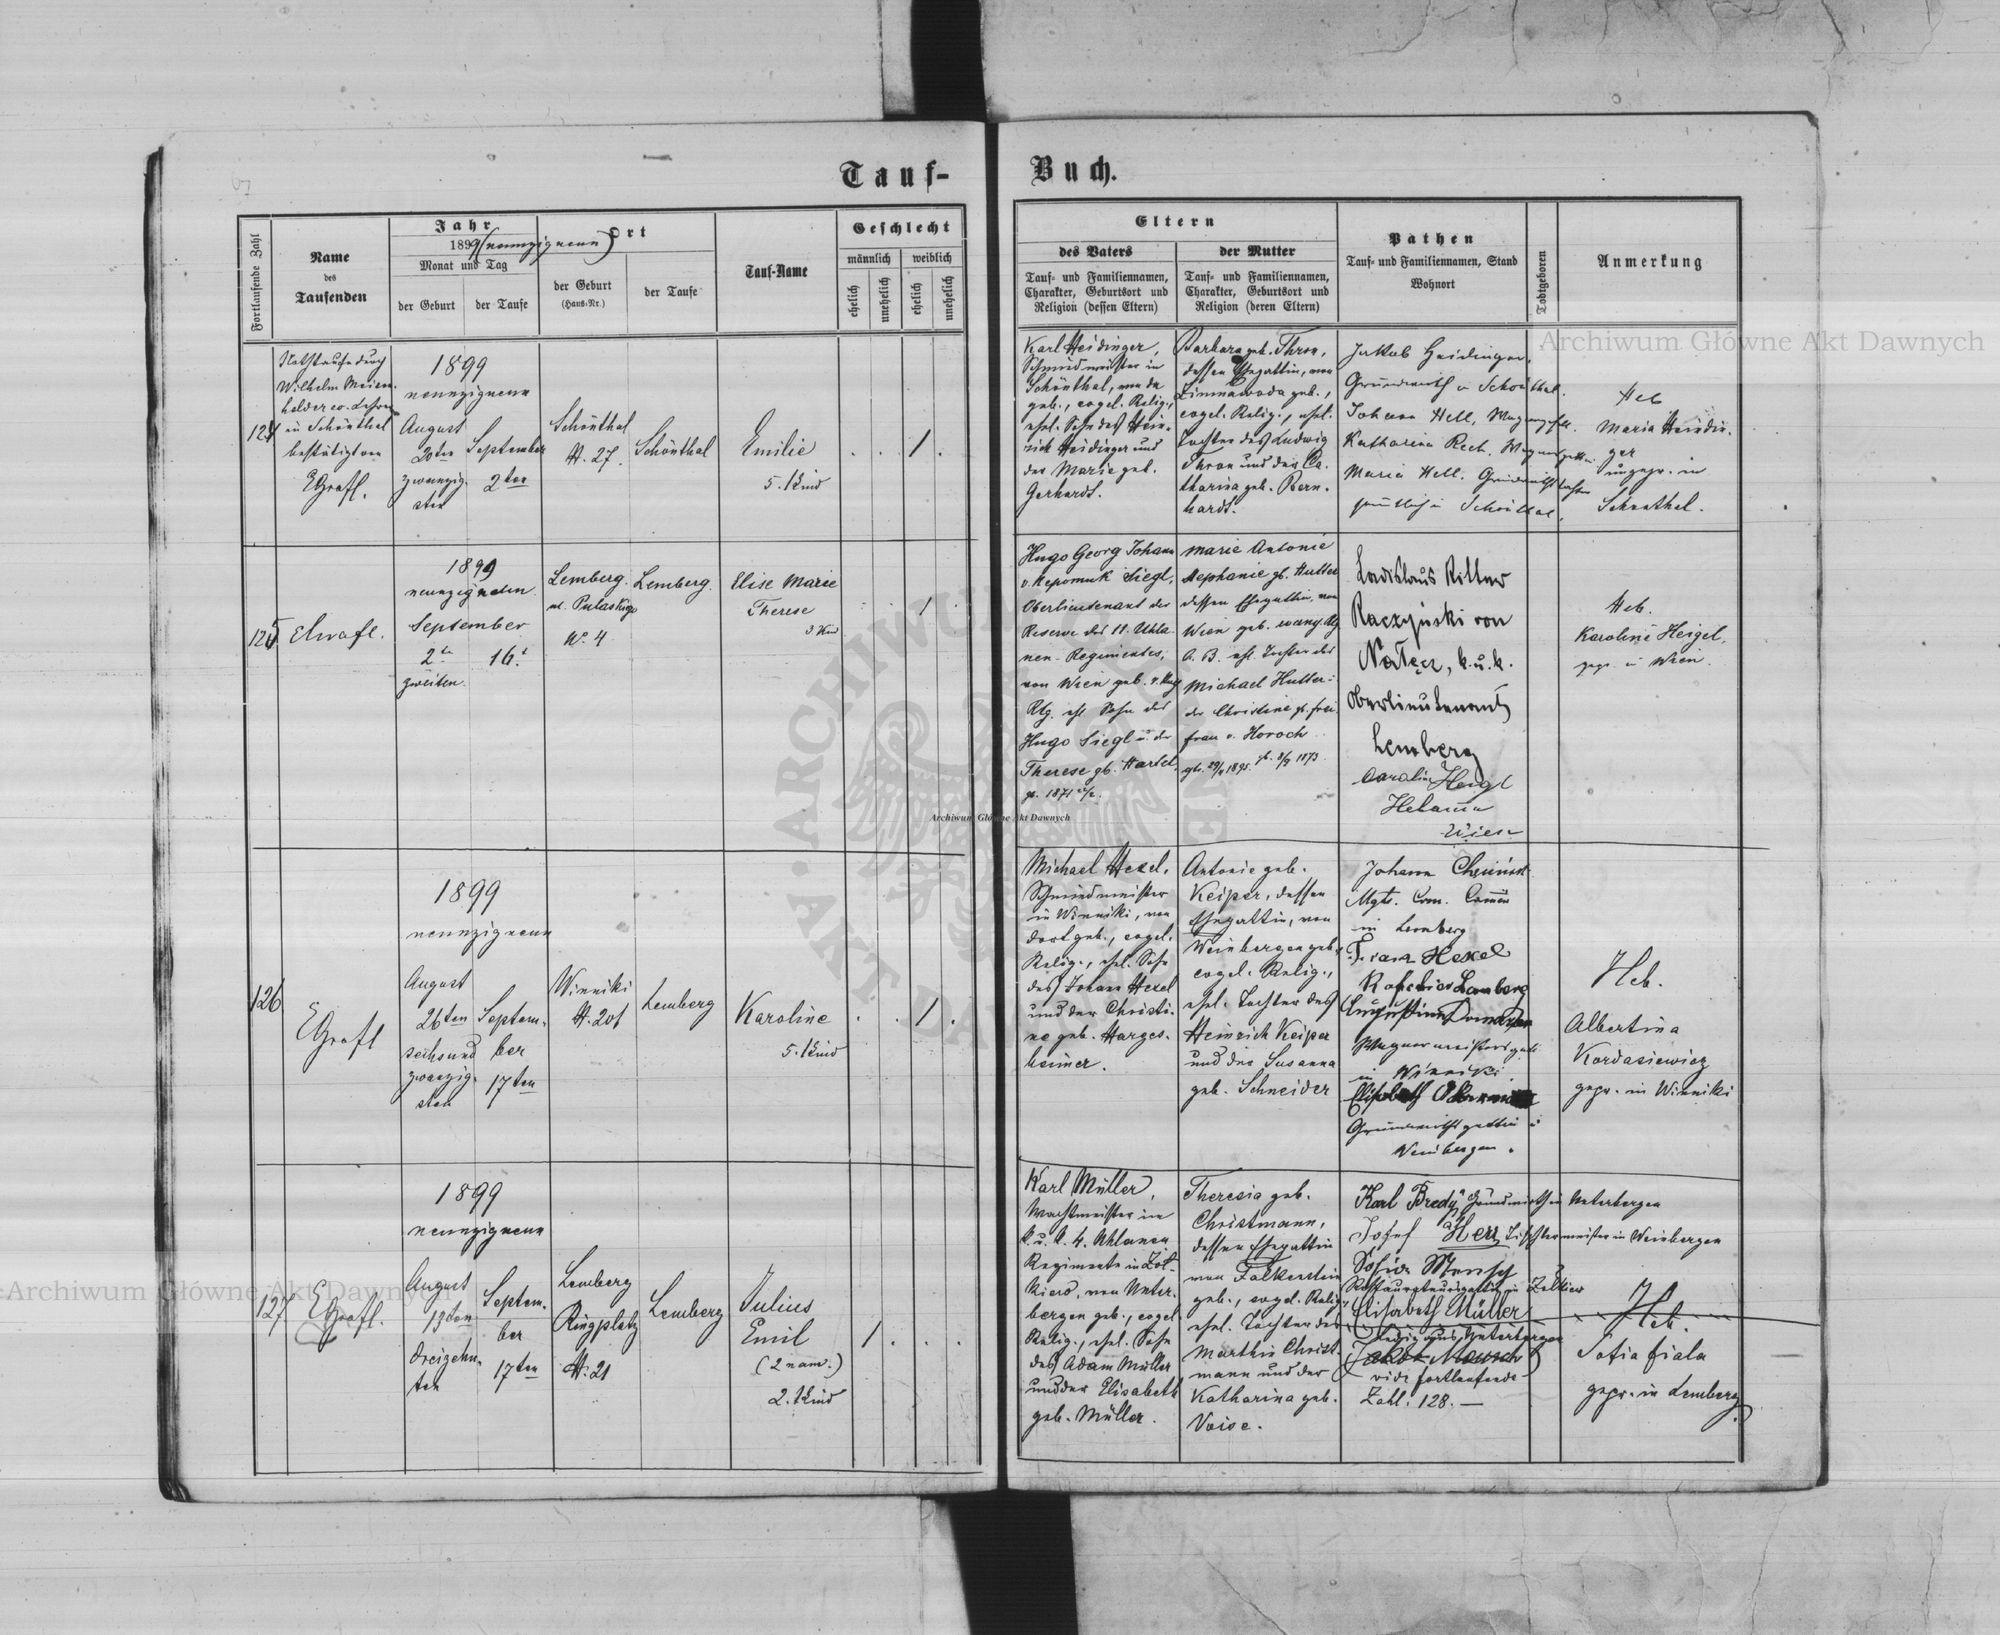 Tauf-
Buch.
Fortlaufende Zahl
Name
des
Taufenden
Jahr
1899 (neunzigneun)
Monat und Tag
der Geburt
der Taufe
Ort
der Geburt
(Haus-Nr.)
der Taufe
Tauf-Name
Geschlecht
männlich
weiblich
ehelich
unehelich
ehelich
unehelich
Eltern
des Vaters
Tauf- und Familiennamen,
Charakter, Geburtsort und
Religion (dessen Eltern)
der Mutter
Tauf- und Familiennamen,
Charakter, Geburtsort und
Religion (deren Eltern)
Pathen
Tauf- und Familiennamen, Stand
Wohnort
Todtgeboren
Anmerkung
124
Nothtaufe durch
Wilhelm
in Schönthal
bestätigt von
EGrafl.
1899
neunzigneun
August
20ten
zwanzig-
sten
September
2ten
Schönthal
H. 27.
Schönthal
Emilie
5. Kind
1
Karl Heidinger,
Schmiedmeister in
Schönthal, von da
geb., evgel. Relig.,
ehel. Sohn des Hein-
rich Heidinger und
der Marie geb.
Gerhardt.
Barbara geb. Thron,
dessen Ehegattin, von
geb.,
evgel. Relig., ehel.
Tochter des Ludwig
Thron und der Ca-
tharina geb. Bern-
hardt.
Jakob Heidinger,
Grundwirth in Schönthal.
Johann Hell,
Katharina Rech,
Maria Hell,
in Schönthal.
Heb
Maria Heidin-
ger
ungepr. in
Schönthal.
125
1899
neunzigneun
September
2te
zweiten
16t
Lemberg.
ul. Pulaskiego
No. 4
Lemberg.
Elise Marie
Therese
3 Kind
1
Hugo Georg Johann
v. Nepomuk Siegl,
Oberlieutenant der
Reserve des 11. Uhla-
nen-Regimentes,
von Wien geb.
Rlg. ehl. Sohn des
Hugo Siegl u. der
Therese gb. Hartel.
Marie Antonie
Stephanie gb. Hutter
dessen Ehegattin, von
Wien geb. evang Rg
A. B. ehl. Tochter des
Michael Hutter
der Christine gb. Frei-
frau v. Horoch
Ladislaus Ritter
Raczyński von
Nałęcz, k.u.k.
Oberlieutenant
Lemberg
Heigl
Wien
Heb.
Karoline Heigel,
gepr. in Wien.
126
EGrafl
1899
neunzigneun
August
26ten
sechsund
zwanzig-
sten
Septem-
ber
17ten
Winniki
H. 201
Lemberg
Karoline
5. Kind
1
Michael Hexel,
Schmiedmeister
in Winniki, von
dort geb., evgel.
Relig., ehel. Sohn
des Johann Hexel
und der Christi-
ne geb. Harges-
heimer.
Antonie geb.
Keiper, dessen
Ehegattin, von
Weinbergen geb.,
evgel. Relig.,
ehel. Tochter des
Heinrich Keiper
und der Susanna
geb. Schneider
Johann
Mgtr. Com.
in Lemberg
Franz Hexel
Lemberg
in Winniki
Elisabeth
Grundwirthsgattin in
Weinbergen.
Heb.
Albertina
Kordasiewicz
gepr. in Winniki
127
EGrafl.
1899
neunzigneun
August
13ten
dreizehn-
ten
Septem-
ber
17ten
Lemberg
Ringplatz
H. 21
Lemberg
Julius
Emil
(2 nam.)
2. Kind
1
Karl Müller,
Wachtmeister im
k.u.k. 4. Uhlanen
Regimente in Żół-
kiew, von Unter-
bergen geb., evgel.
Relig., ehel. Sohn
des Adam Müller
und der Elisabeth
geb. Müller.
Theresia geb.
Christmann,
dessen Ehegattin
von Falkenstein
geb., evgel. Relig.,
ehel. Tochter des
Martin Christ-
mann und der
Katharina geb.
Voise.
Karl Bredy Grundwirth in Unterbergen
Josef Herz Tischlermeister in Weinbergen
Sofie Mensch
in Żółkiew
Elisabeth Müller
ledig aus Unterbergen
(Jakob Mensch)
vide fortlaufende
Zahl: 128. —
Heb.
Sofia Fiala
gepr. in Lemberg
Archiwum Główne Akt Dawnych
Archiwum Główne Akt Dawnych
Archiwum Główne Akt Dawnych